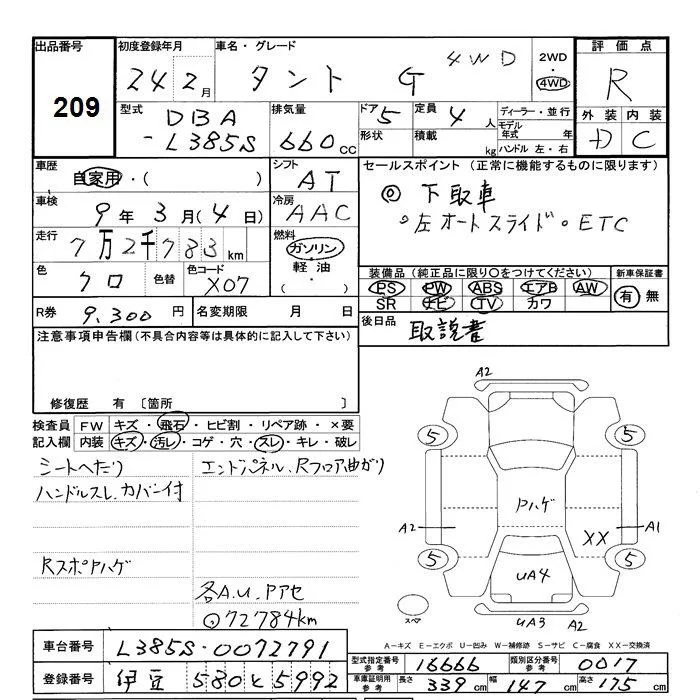 出品番号
209
初度登録年月
24年2月
車名・グレード
タント G 4WD
2WD
・
4WD
評価点
R
外装 内装
D C
型式
DBA
-L385S
排気量
660cc
ドア 5
定員 4人
形状
積載 kg
ディーラー・並行
モデル年式 年
ハンドル 左・右
車歴
自家用・( )
シフト
AT
車検
9年3月(4日)
冷房
AAC
走行
7万2千783km
燃料
ガソリン
(軽油・ )
色
クロ
色替
色コード
X07
R券 9,300円
名変期限 月 日
セールスポイント(正常に機能するものに限ります)
◎下取車
○左オートスライド ○ETC
装備品(純正品に限り〇をつけてください)
PS PW ABS エアB AW
SR ナビ TV カワ
新車保証書
有 無
後日品
取説書
注意事項申告欄(不具合内容等は具体的に記入して下さい)
修復歴 有〔箇所 〕
検査員
記入欄
FW キズ・飛石・ヒビ割・リペア跡・×要
内装 キズ・汚レ・コゲ・穴・スレ・キレ・破レ
シートへたり
ハンドルスレ カバー付
RスポPハゲ
エンドパネル、Rフロア曲がり
各A.U.Pアセ
◎72784km
A2
5 5
Pハゲ
A2 XX A1
5 5
UA4
スペア
UA3 A2
A-キズ E-エクボ U-凹み W-補修跡 S-サビ C-腐食 XX-交換済
車台番号 L385S-0072791
登録番号 伊豆 580と5992
型式指定番号 参考 16666
類別区分番号 参考 0017
車庫証明用 参考 長さ 339cm 幅 147cm 高さ 175cm